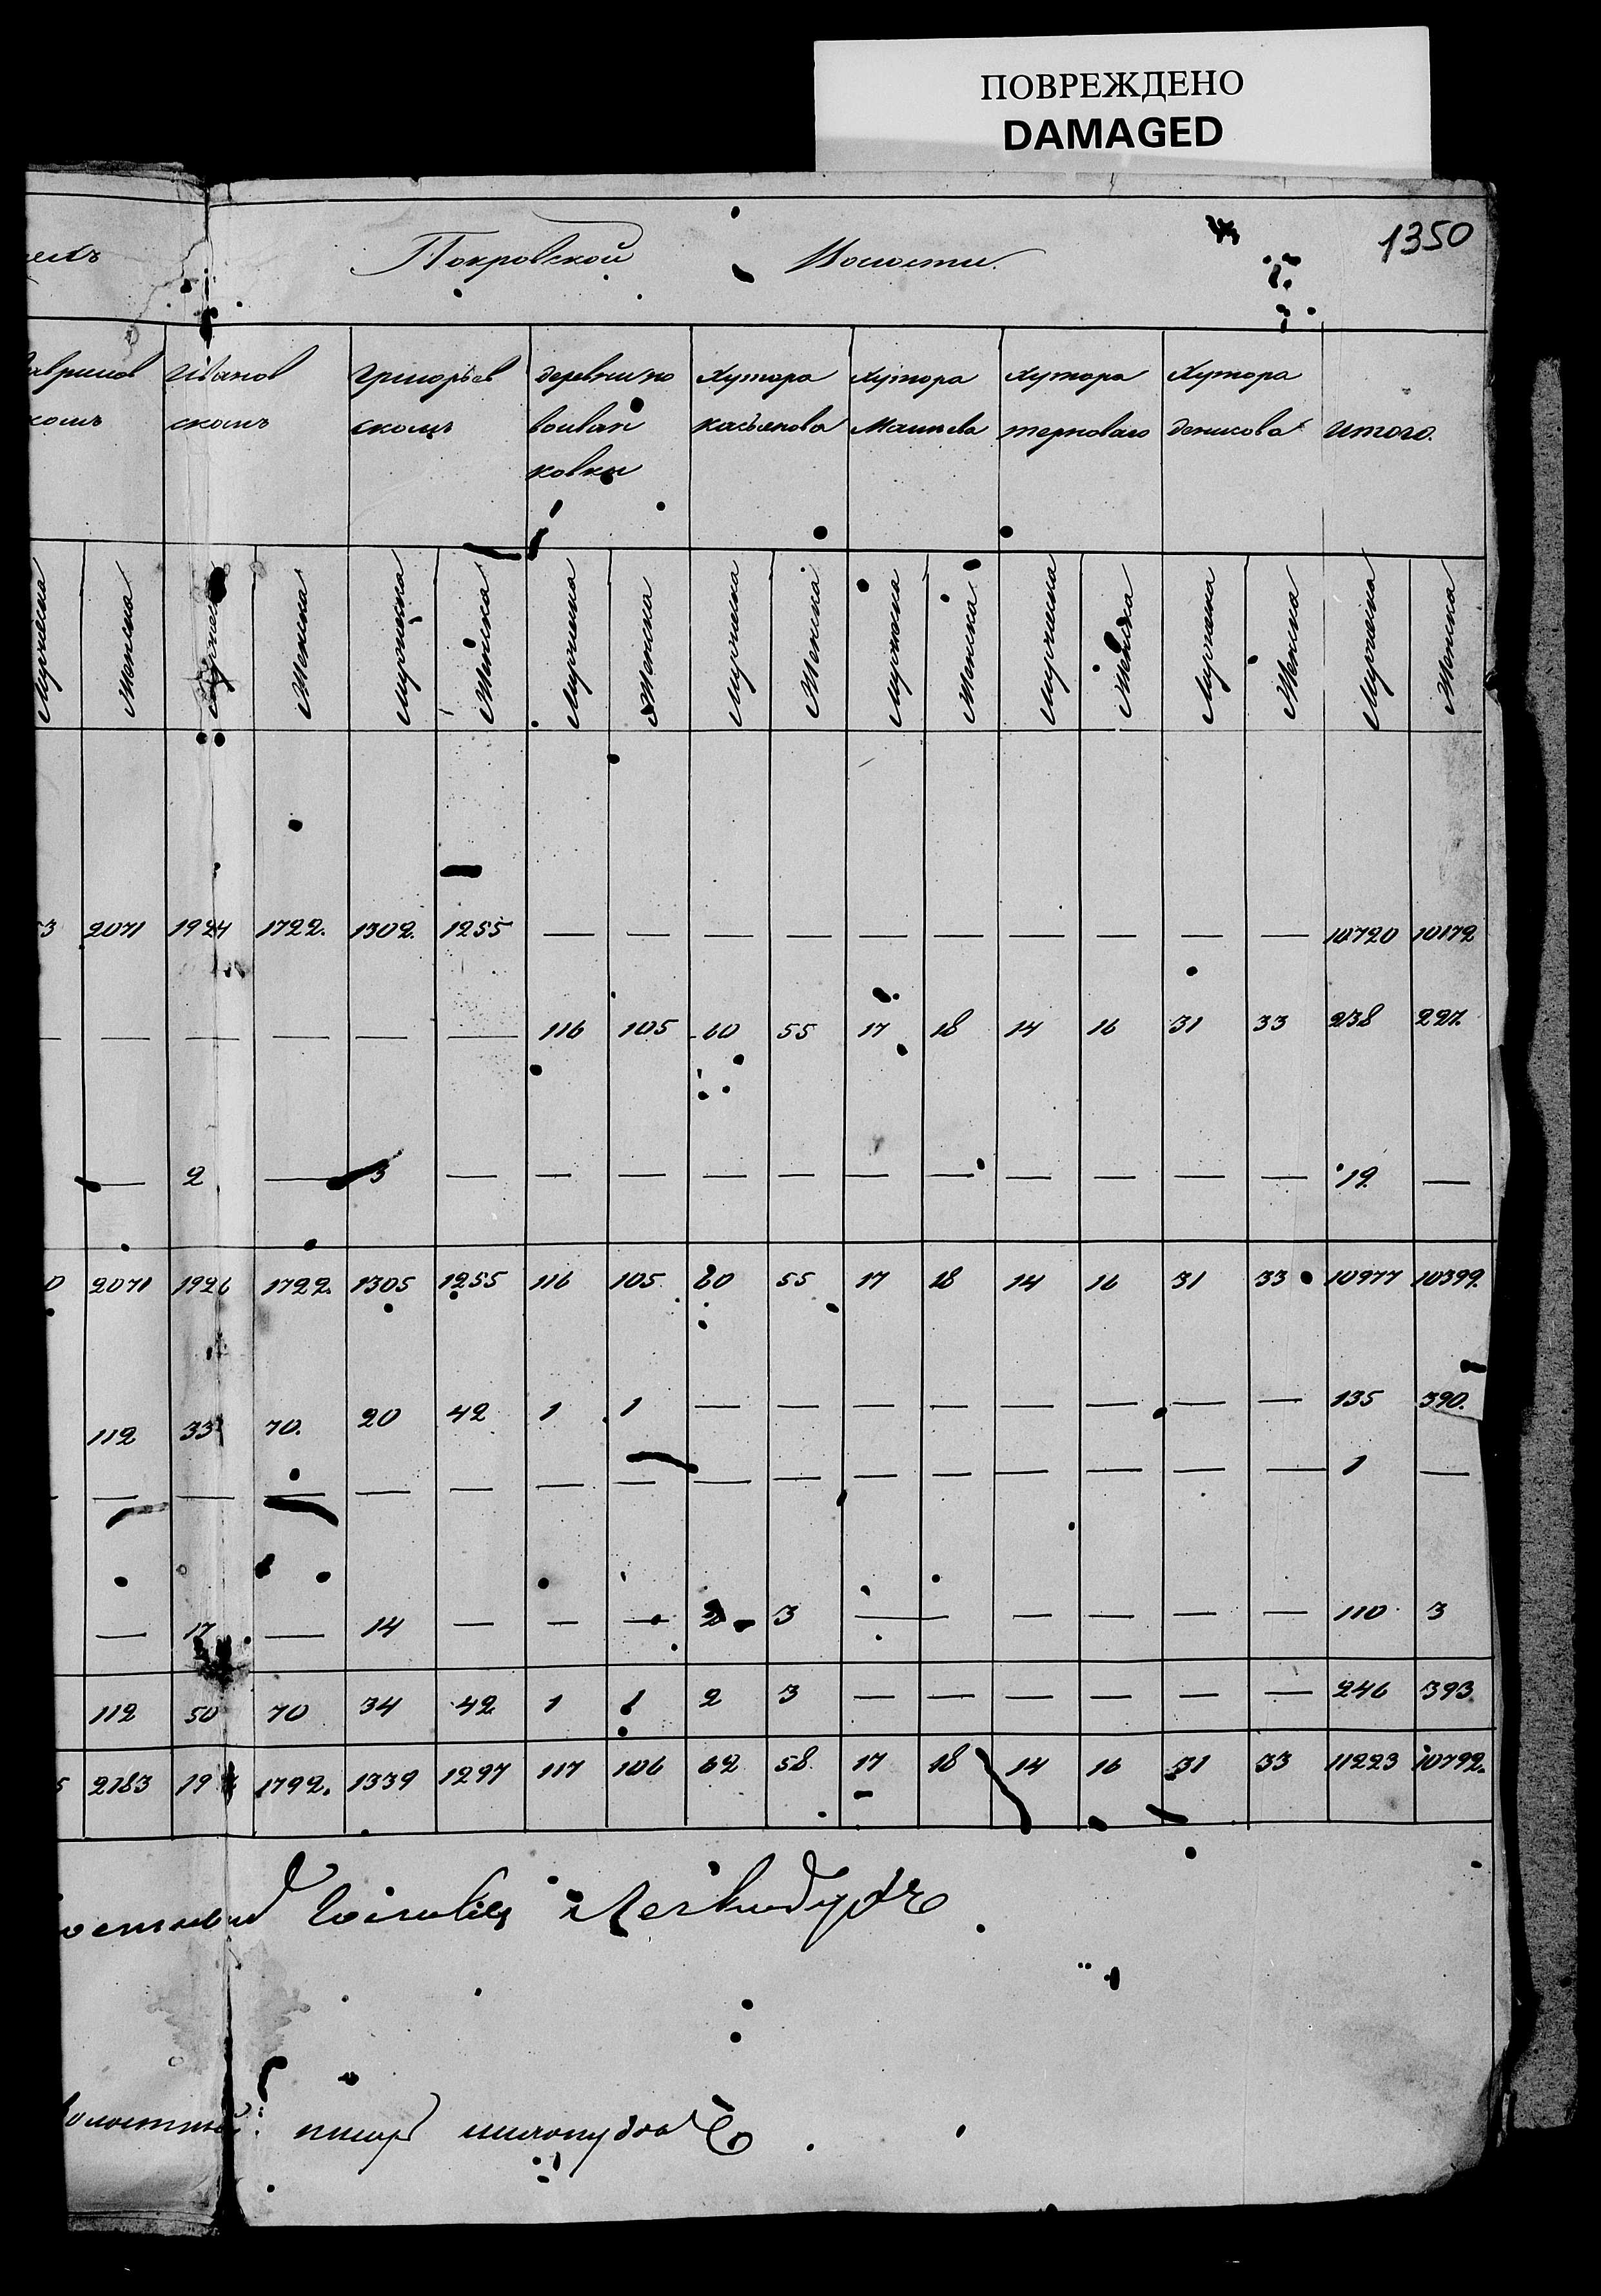 ПОВРЕЖДЕНО
DAMAGED
1350
Покровской Волости.
Иванов скомъ
Григорьев скомъ
деревни но воиван ковки
Хутора касьянова
Хутора
Хутора терноваго
Хутора денисова
Итого.
Мужеска Женска Мужеска Женска Мужеска Женска Мужеска Женска Мужеска Женска Мужеска Женска Мужеска Женска Мужеска Женска Мужеска Женска
3 2071 1924 1722. 1302. 1255 — — — — — — — — — — 10720 10172
— — — — — — 116 105 60 55 17 18 14 16 31 33 238 227.
— 2 — 3 — — — — — — — — — — — 19. —
0 2071 1926 1722. 1305 1255 116 105 60 55 17 18 14 16 31 33 10977 10399.
112 33 70. 20 42 1 1 — — — — — — — — 135 390.
— — — — — — — — — — — — — — — 1 —
— 17 — 14 — — — 2 3 — — — — — 110 3
112 50 70 34 42 1 1 2 3 — — — — — — 246 393
5 2183 19 1792. 1339 1297 117 106 62 58 17 18 14 16 31 33 11223 10792.
писарь